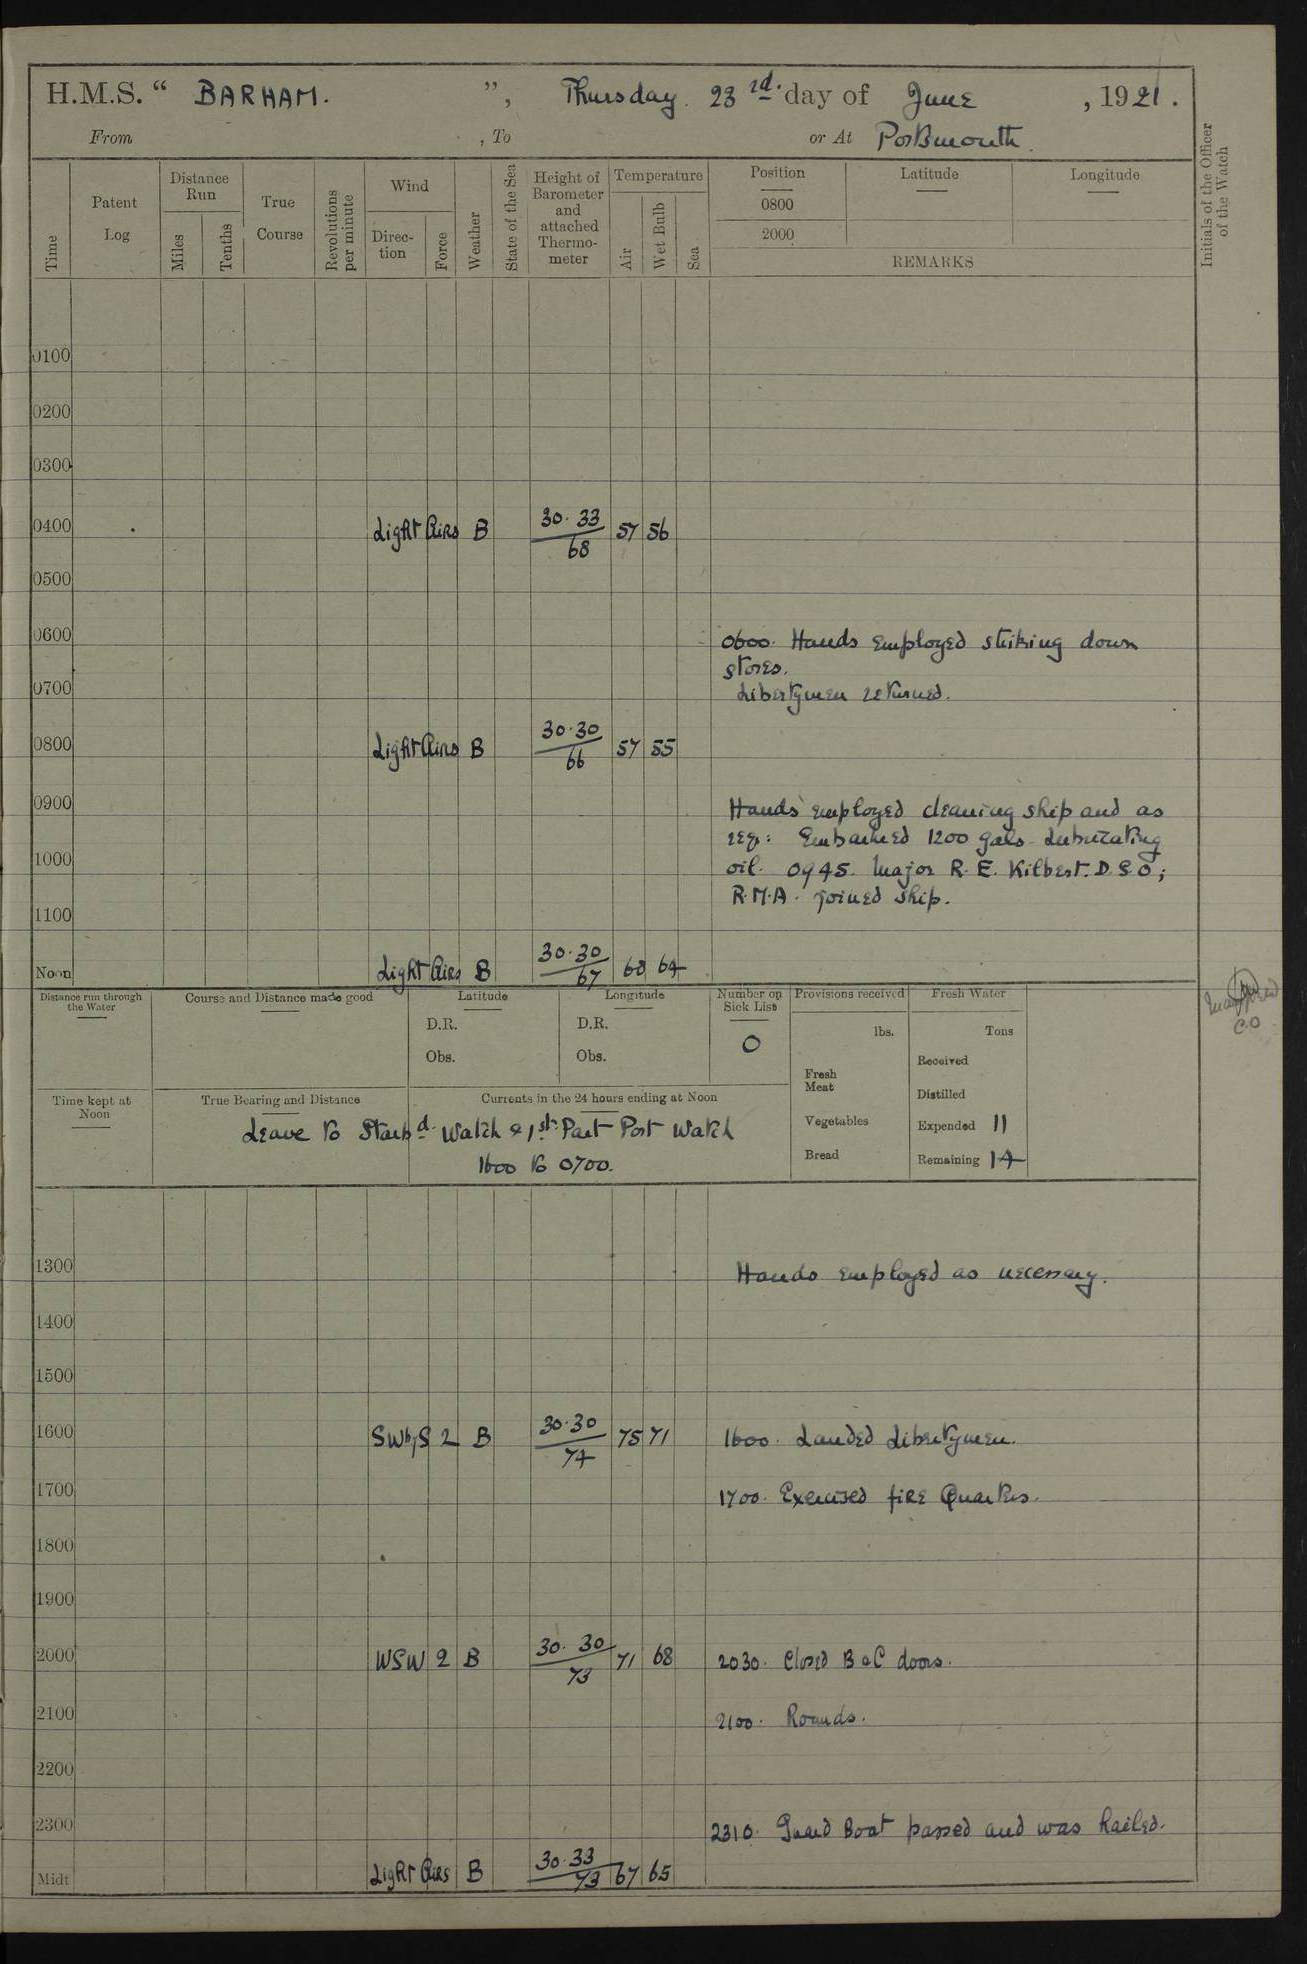 H.M.S. “ BARHAM. ”, Thursday. 23rd. day of June , 1921.
From , To or At Portsmouth.
Time
Patent Log
Distance Run
Miles
Tenths
True Course
Revolutions per minute
Wind
Direc-tion
Force
Weather
State of the Sea
Height of Barometer and attached Thermo-meter
Temperature
Air
Wet Bulb
Sea
Position
0800
2000
Latitude
Longitude
REMARKS
Initials of the Officer of the Watch
0100
0200
0300
0400 Light Airs B 30.33/68 57 56
0500
0600 0600. Hands employed striking down
stores.
0700 Libertymen returned.
0800 Light Airs B 30.30/66 57 55
0900 Hands employed cleaning ship and as
req: Embarked 1200 gals Lubricating
1000 oil. 0945. Major R. E. Kilbert. D.S.O;
R.M.A. joined ship.
1100
Noon Light Airs B 30.30/67 68 64
Distance run through the Water
Course and Distance made good
Latitude
D.R.
Obs.
Longitude
D.R.
Obs.
Number on Sick List
0
Provisions received
lbs.
Fresh Meat
Vegetables
Bread
Fresh Water
Tons
Received
Distilled
Expended 11
Remaining 14
Time kept at Noon
True Bearing and Distance
Currents in the 24 hours ending at Noon
Leave to Starbd. Watch & 1st Part Port Watch
1600 to 0700.
C.O
1300 Hands employed as necessary.
1400
1500
1600 SWbyS 2 B 30.30/74 75 71 1600. Landed Libertymen.
1700 1700. Exercised fire Quarters.
1800
1900
2000 WSW 2 B 30.30/73 71 68 2030. Closed B & C doors.
2100 2100. Rounds.
2200
2300 2310. Guard Boat passed and was hailed.
Midt Light Airs B 30.33/73 67 65